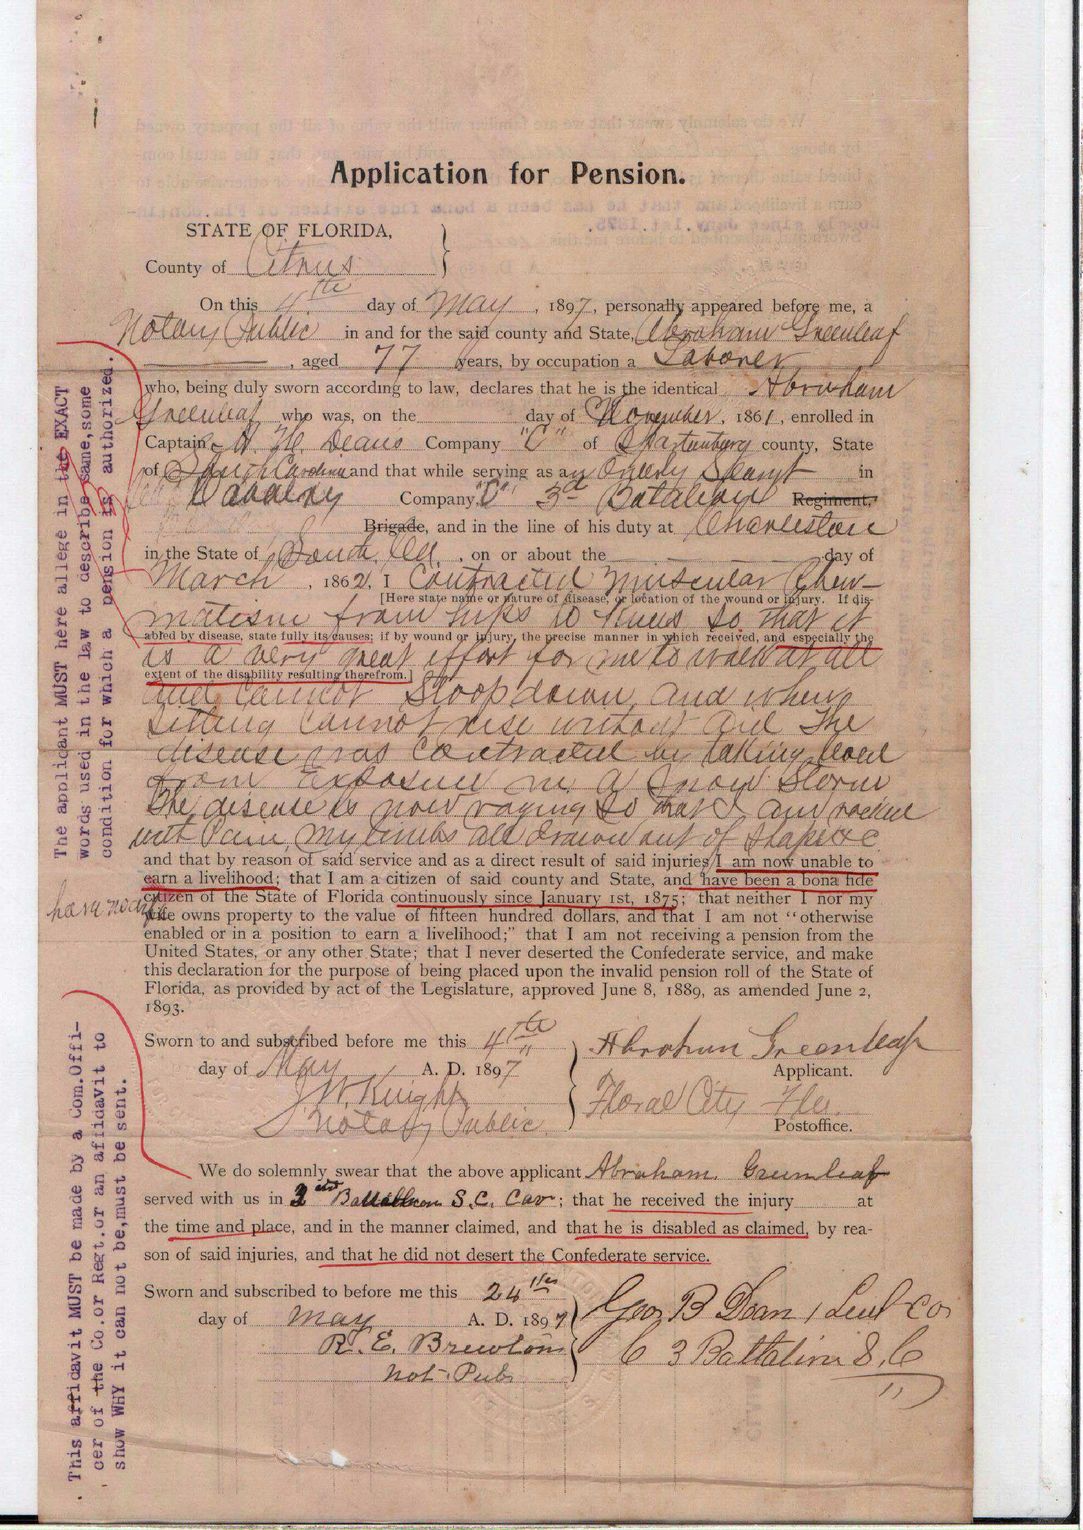 Application for Pension.
STATE OF FLORIDA,
County of Citrus
On this 4th day of May, 1897, personally appeared before me, a
Notary Public in and for the said county and State, Abraham Greenleaf
, aged 77 years, by occupation a Laborer
who, being duly sworn according to law, declares that he is the identical Abraham
Greenleaf who was, on the day of November, 1861, enrolled in
Captain Deans Company "C" of Spartenburg county, State
of South Carolina and that while serving as an Orderly in
Company "C" 3rd Batalion Regiment,
Brigade, and in the line of his duty at Charleston
in the State of South, on or about the day of
March, 1862, I Contracted Muscular Rheu-
[Here state name or nature of disease, or location of the wound or injury. If dis-
matism from hips to knees so that it
abled by disease, state fully its causes; if by wound or injury, the precise manner in which received, and especially the
is a very great effort for me to walk at all
extent of the disability resulting therefrom.]
and cannot Stoop down, and when
sitting cannot rise without aid The
disease was contracted by taking
from Exposure in a Snow Storm
The disease is now raging so that I am racked
with Pain, my limbs all drawn out of shape &c
and that by reason of said service and as a direct result of said injuries I am now unable to
earn a livelihood; that I am a citizen of said county and State, and have been a bona fide
citizen of the State of Florida continuously since January 1st, 1875; that neither I nor my
wife owns property to the value of fifteen hundred dollars, and that I am not "otherwise
enabled or in a position to earn a livelihood;" that I am not receiving a pension from the
United States, or any other State; that I never deserted the Confederate service, and make
this declaration for the purpose of being placed upon the invalid pension roll of the State of
Florida, as provided by act of the Legislature, approved June 8, 1889, as amended June 2,
1893.
Sworn to and subscribed before me this 4th
day of May A. D. 1897
J W Knight
Notary Public
Abraham Greenleaf
Applicant.
Floral City Fla.
Postoffice.
We do solemnly swear that the above applicant Abraham Greenleaf
served with us in Battalion S.C. Cav; that he received the injury at
the time and place, and in the manner claimed, and that he is disabled as claimed, by rea-
son of said injuries, and that he did not desert the Confederate service.
Sworn and subscribed to before me this 24th
day of May A. D. 1897
R. E. Brewton
Not. Pub.
Geo B Dean 1 Leut Co
C 3 Battalion S.C
The applicant MUST here allege in the EXACT
words used in the law to describe same, some
condition for which a pension is authorized.
This affidavit MUST be made by a Com. Offi-
cer of the Co. or Regt. or an affidavit to
show WHY it can not be, must be sent.